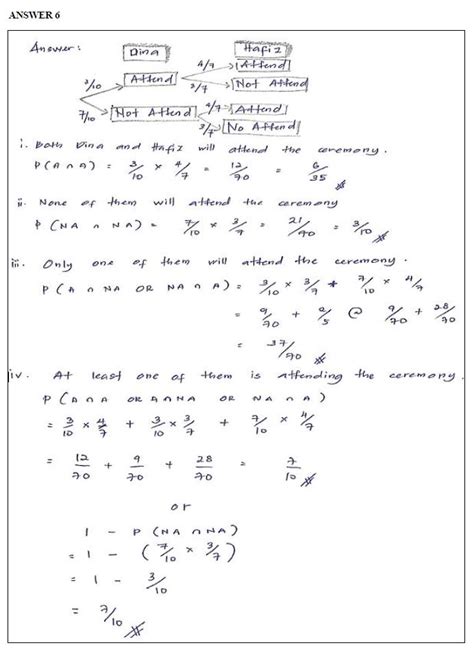 ANSWER 6
Answer: Dina Hafiz
3/10 Attend 4/7 Attend
3/7 Not Attend
7/10 Not Attend 4/7 Attend
3/7 No Attend
i. Both Dina and Hafiz will attend the ceremony.
P(A ∩ A) = 3/10 × 4/7 = 12/70 = 6/35
ii. None of them will attend the ceremony
P(NA ∩ NA) = 7/10 × 3/7 = 21/70 = 3/10
iii. Only one of them will attend the ceremony.
P(A ∩ NA OR NA ∩ A) = 3/10 × 3/7 + 7/10 × 4/7
= 9/70 + 2/5 @ 9/70 + 28/70
= 37/70
iv. At least one of them is attending the ceremony.
P(A ∩ A OR A ∩ NA OR NA ∩ A)
= 3/10 × 4/7 + 3/10 × 3/7 + 7/10 × 4/7
= 12/70 + 9/70 + 28/70 = 7/10
or
1 - P(NA ∩ NA)
= 1 - (7/10 × 3/7)
= 1 - 3/10
= 7/10